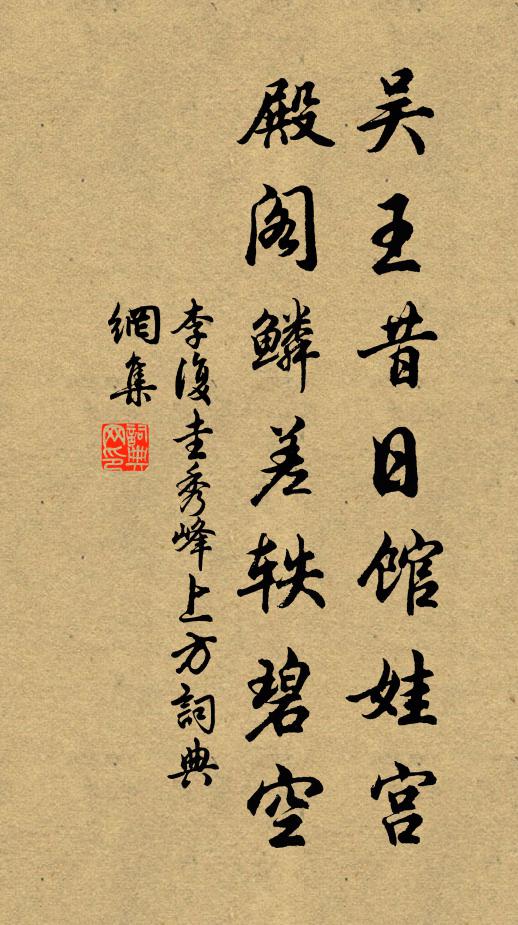 吴王昔日馆娃宫
殿阁鳞差轶碧空
李復圭秀峰上方詞典
網集
詞典网印